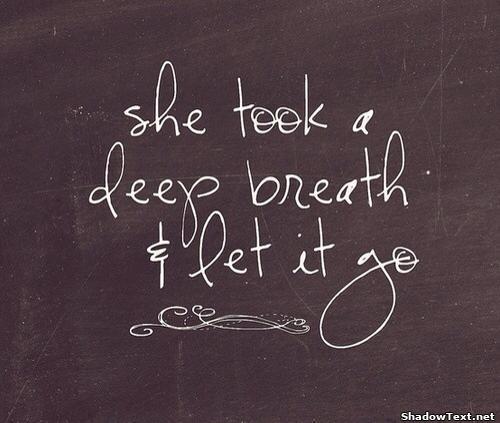 she took a
deep breath
& let it go
ShadowText.net